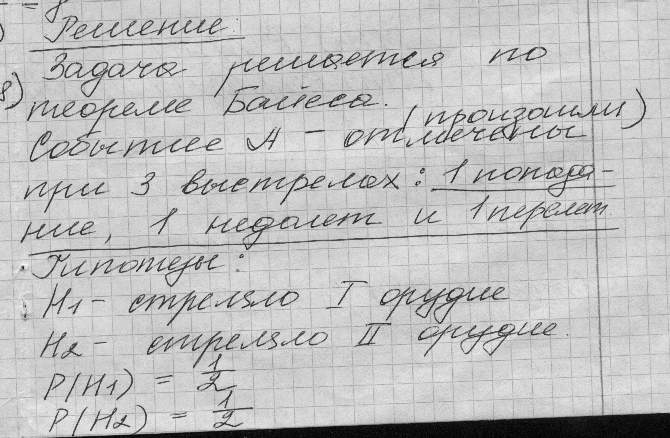 = 8
Решение:
8) Задача решается по
теореме Байеса.
(произошли)
Событие А - отмечены
при 3 выстрелах: 1 попада-
ние, 1 недолет и 1 перелет
Гипотезы:
H1 - стреляло I орудие
H2 - стреляло II орудие.
P(H1) = 1/2
P(H2) = 1/2